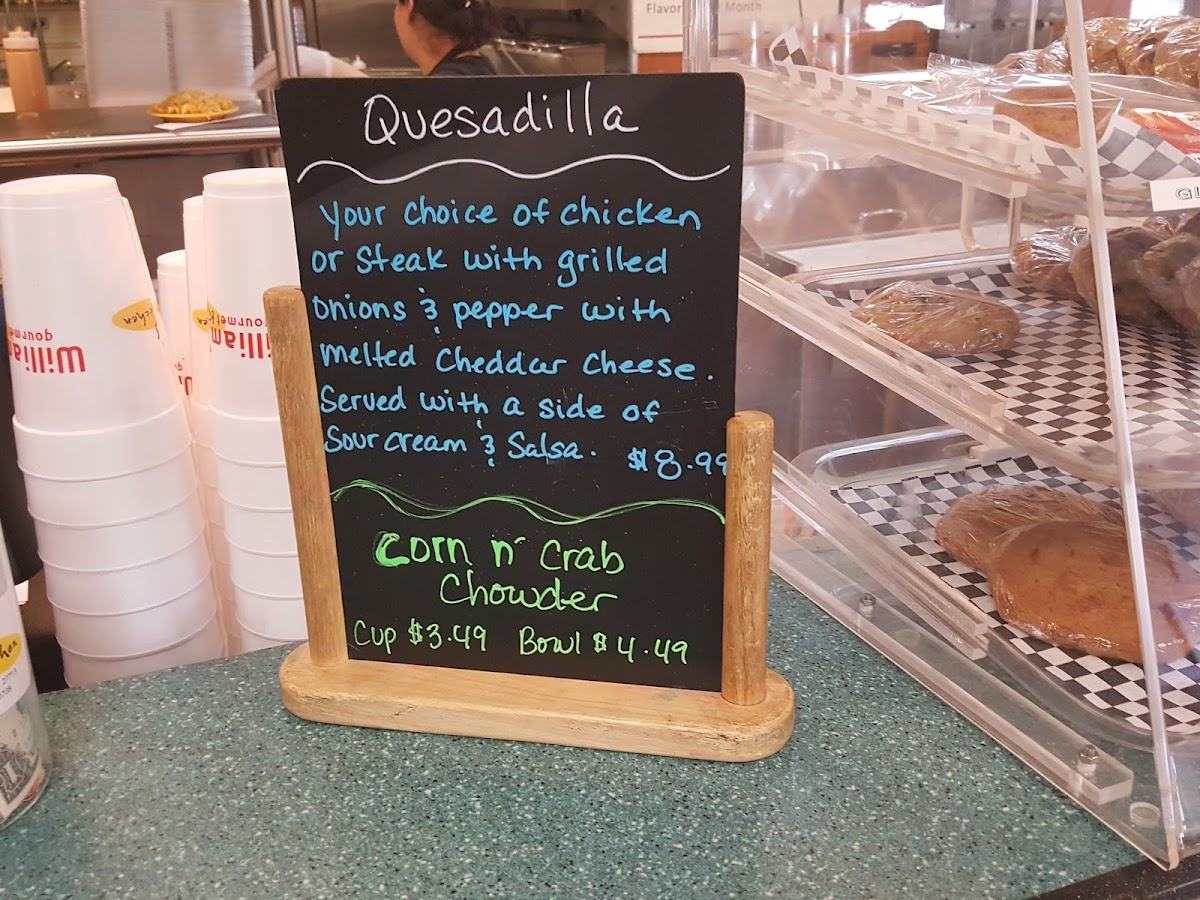 Flavor
Month
Quesadilla
Your choice of chicken
or Steak with grilled
onions & pepper with
melted Cheddar Cheese.
Served with a side of
Sour cream & Salsa. $8.99
Corn n' Crab
Chowder
Cup $3.49 Bowl $4.49
gourmet